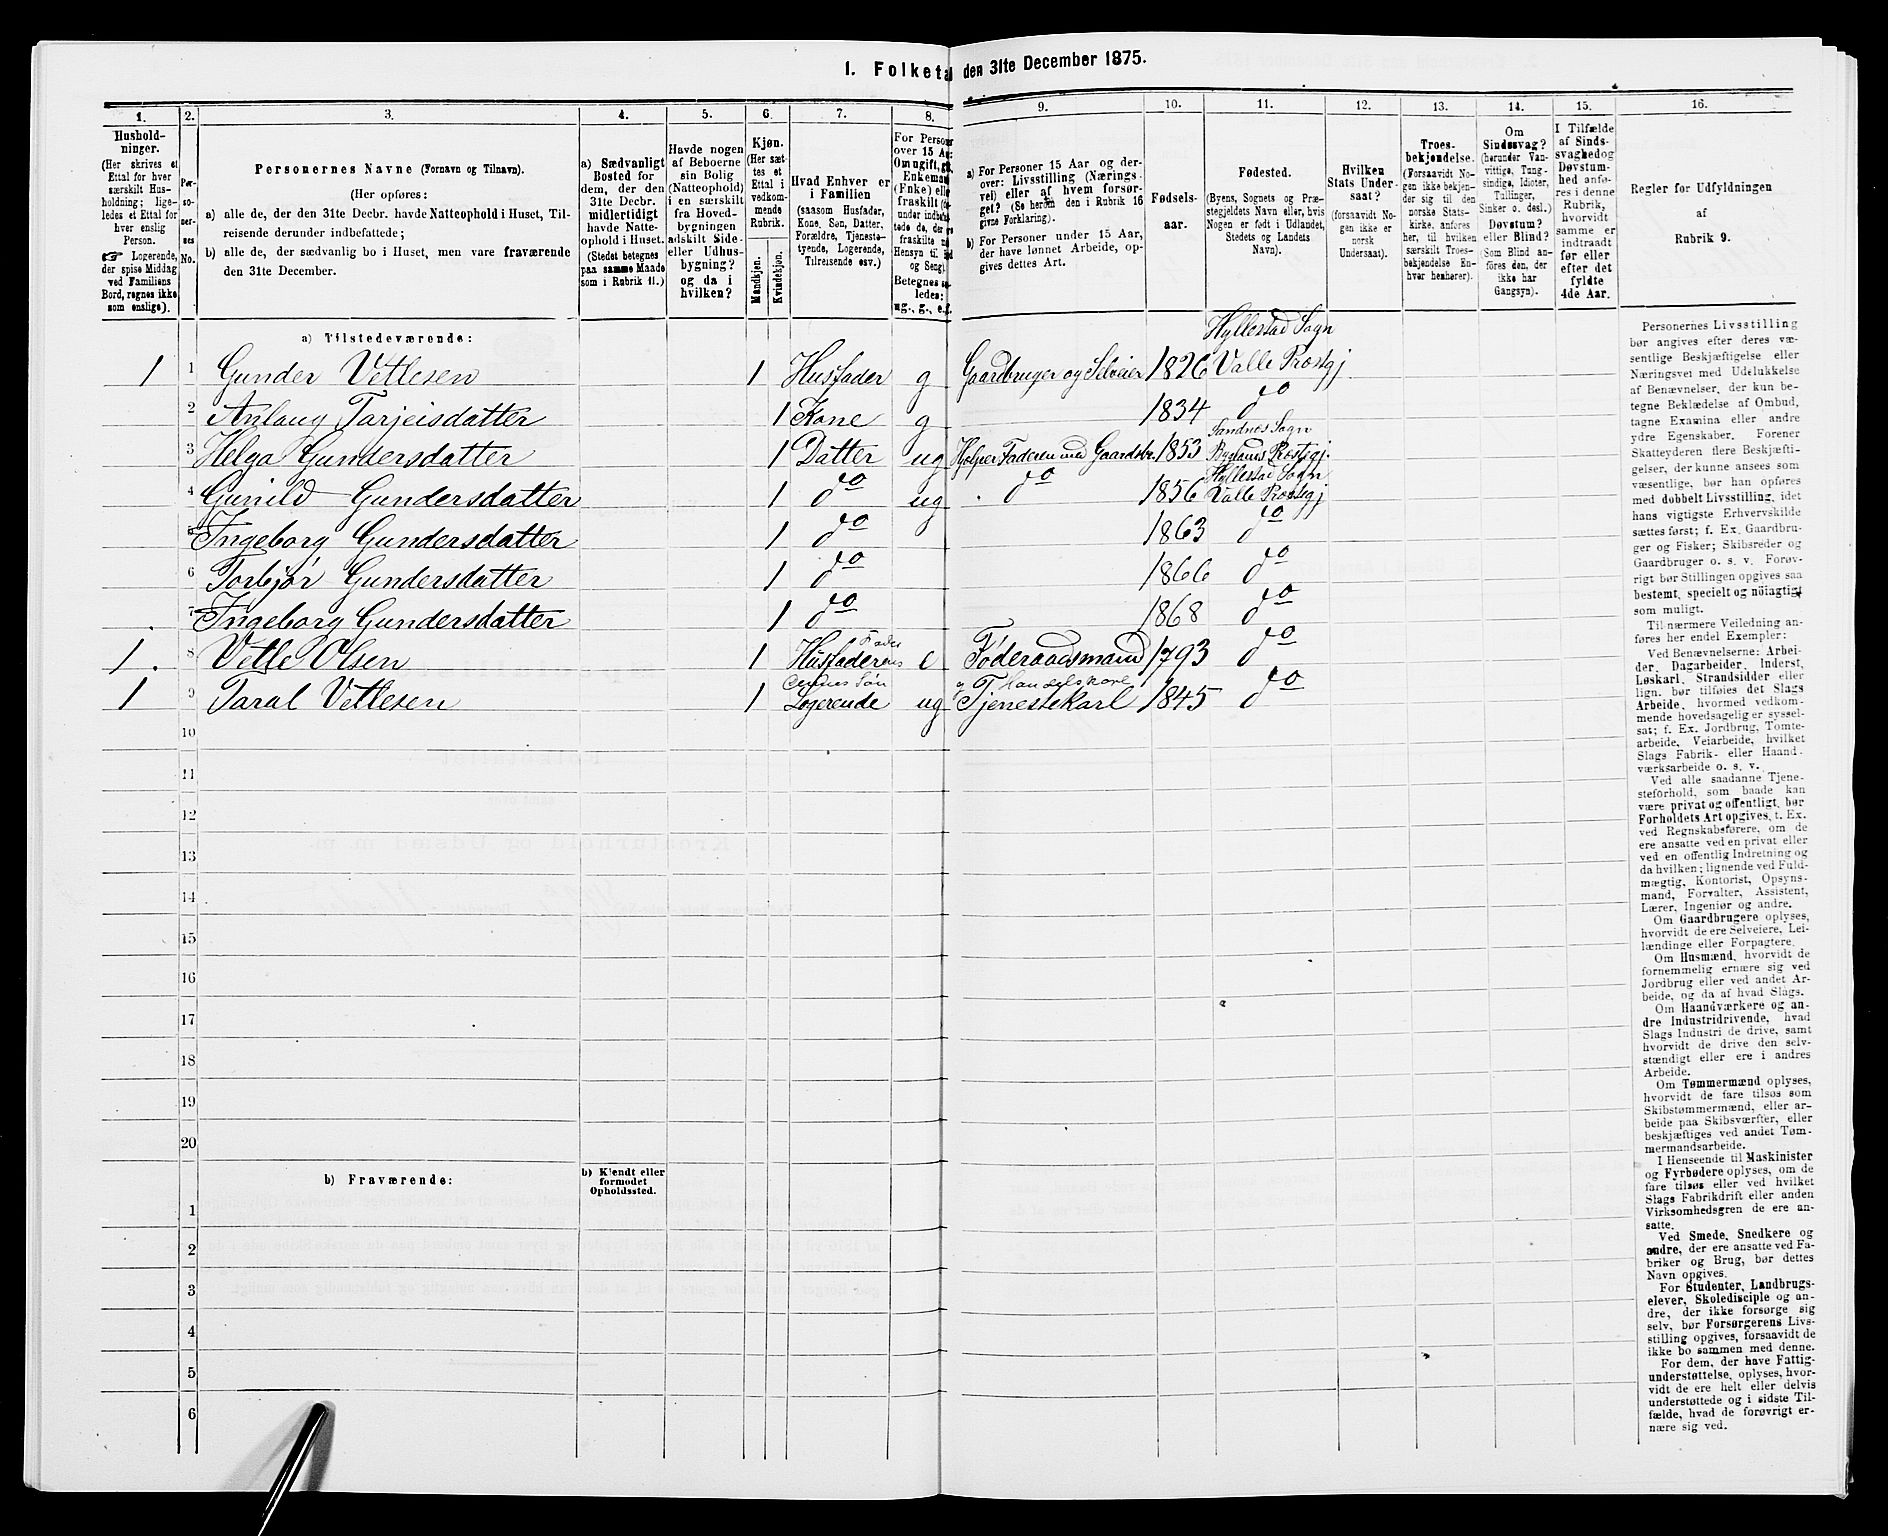 1. Folketal den 31te December 1875.
1.
Hushold-
ninger.
(Her skrives et
Ettal for hver
særskilt Hus-
holdning; lige-
ledes et Ettal for
hver enslig
Person.
☞ Logerende,
der spise Middag
ved Familiens
Bord, regnes ikke
som enslige).
2.
Per-
so-
ner-
nes
No.
3.
Personernes Navne (Fornavn og Tilnavn).
(Her opføres:
a) alle de, der den 31te Decbr. havde Natteophold i Huset, Til-
reisende derunder indbefattede;
b) alle de, der sædvanlig bo i Huset, men vare fraværende
den 31te December.
4.
a) Sædvanligt
Bosted for
dem, der den
31te Decbr.
midlertidigt
havde Natte-
ophold i Huset.
(Stedet betegnes
paa samme Maade
som i Rubrik 11.)
5.
Havde nogen
af Beboerne
sin Bolig
(Natteophold)
i en særskilt
fra Hoved-
bygningen
adskilt Side-
eller Udhus-
bygning?
og da i
hvilken?
6.
Kjøn.
(Her sæt-
tes et
Ettal i
vedkom-
mende
Rubrik.
Mandkjøn.
Kvindekjøn.
7.
Hvad Enhver er
i Familien
(saasom Husfader,
Kone, Søn, Datter,
Forældre, Tjeneste-
tyende, Logerende,
Tilreisende osv.)
8.
For Person
over 15 Aar
Om ugift, gift,
Enkemand
(Enke) eller
fraskilt
Betegnes saa-
ledes:
ug., g., e.,
9.
a) For Personer 15 Aar og der-
over: Livsstilling (Nærings-
vei) eller af hvem forsør-
get? (Se herom den i Rubrik 16
givne Forklaring).
b) For Personer under 15 Aar,
der have lønnet Arbeide, op-
gives dettes Art.
10.
Fødsels-
aar.
11.
Fødested.
(Byens, Sognets og Præ-
stegjeldets Navn eller, hvis
Nogen er født i Udlandet,
Stedets og Landets
Navn).
12.
Hvilken
Stats Under-
saat?
(forsaavidt No-
gen ikke er
norsk
Undersaat).
13.
Troes-
bekjendelse.
(Forsaavidt Nogen
ikke bekjen-
der sig til den
norske Stats-
kirke, anføres
her, til hvilken
særskilt Troes-
bekjendelse En-
hver henhører).
14.
Om
Sindssvag?
(herunder Van-
vittige, Tung-
sindige, Idioter,
Tullinger,
Sinker o. desl.)
Døvstum?
eller Blind?
(Som Blind an-
føres den, der
ikke har
Gangsyn).
15.
I Tilfælde
af Sinds-
svaghed og
Døvstum-
hed anfø-
res i denne
Rubrik,
hvorvidt
samme er
indtraadt
før eller
efter det
fyldte
4de Aar.
16.
Regler for Udfyldningen
af
Rubrik 9.
a) Tilstedeværende:
Hyllestad Sogn
1 1 Gunder Vetlesen 1 Husfader g Gaardbruger og Selveier 1826 Valle Prestgj.
2 Anlaug Tarjeisdatter 1 Kone g 1834 do
Sandnes Sogn
3 Helga Gundersdatter 1 Datter ug Hjelper Faderen med Gaardsbr. 1853 Byglands Prestgj.
Hyllestad Sogn
4 Gunild Gundersdatter 1 do ug do 1856 Valle Prestgj
5 Ingeborg Gundersdatter 1 do 1863 do
6 Torbjør Gundersdatter 1 do 1866 do
7 Ingeborg Gundersdatter 1 do 1868 do
Fader
1. 8 Vetle Olsen 1 Husfaderens e Føderaadsmand 1793 do
dennes Søn Handelskarl
1 9 Taral Vetlesen 1 Logerende ug Tjenestekarl 1845 do
10
11
12
13
14
15
16
17
18
19
20
b) Fraværende:
b) Kjendt eller
formodet
Opholdssted.
1
2
3
4
5
6
Personernes Livsstilling
bør angives efter deres væ-
sentlige Beskjæftigelse eller
Næringsvei med Udelukkelse
af Benævnelser, der kun be-
tegne Beklædelse af Ombud,
tagne Examina eller andre
ydre Egenskaber. Forener
Skatteyderen flere Beskjæfti-
gelser, der kunne ansees som
væsentlige, bør han opføres
med dobbelt Livsstilling, idet
hans vigtigste Erhvervskilde
sættes først; f. Ex. Gaardbru-
ger og Fisker; Skibsreder og
Gaardbruger o. s. v. Forøv-
rigt bør Stillingen opgives saa
bestemt, specielt og nöiagtigt
som muligt.
Til nærmere Veiledning an-
føres her endel Exempler:
Ved Benævnelserne: Arbei-
der, Dagarbeider, Inderst,
Løskarl, Strandsidder eller
lign. bør tilføies det Slags
Arbeide, hvormed vedkom-
mende hovedsagelig er syssel-
sat; f. Ex. Jordbrug, Tomte-
arbeide, Veiarbeide, hvilket
Slags Fabrik- eller Haand-
værksarbeide o. s. v.
Ved alle saadanne Tjene-
steforhold, som baade kan
være privat og offentligt, bør
Forholdets Art opgives, t. Ex.
ved Regnskabsførere, om de
ere ansatte ved en privat eller
ved en offentlig Indretning og
da hvilken; lignende ved Fuld-
mægtig, Kontorist, Opsyns-
mand, Forvalter, Assistent,
Lærer, Ingeniør og andre.
Om Gaardbrugere oplyses,
hvorvidt de ere Selveiere, Lei-
lændinge eller Forpagtere.
Om Husmænd, hvorvidt de
fornemmelig ernære sig ved
Jordbrug eller ved andet Ar-
beide, og da af hvad Slags.
Om Haandværkere og an-
dre Industridrivende, hvad
Slags Industri de drive, samt
hvorvidt de drive den selv-
stændigt eller ere i andres
Arbeide.
Om Tømmermænd oplyses,
hvorvidt de fare tilsøs som
Skibstømmermænd, eller ar-
beide paa Skibsværfter, eller
beskjæftiges ved andet Tøm-
mermandsarbeide.
I Henseende til Maskinister
og Fyrbødere oplyses, om de
fare tilsøs eller ved hvilket
Slags Fabrikdrift eller anden
Virksomhedsgren de ere an-
satte.
Ved Smede, Snedkere og
andre, der ere ansatte ved Fa-
briker og Brug, bør dettes
Navn opgives.
For Studenter, Landbrugs-
elever, Skoledisciple og an-
dre, der ikke forsørge sig
selv, bør Forsørgerens Livs-
stilling opgives, forsaavidt de
ikke bo sammen med denne.
For dem, der have Fattig-
understøttelse, oplyses, hvor-
vidt de ere helt eller delvis
understøttede og i sidste Til-
fælde, hvad de forøvrigt er-
nære sig ved.